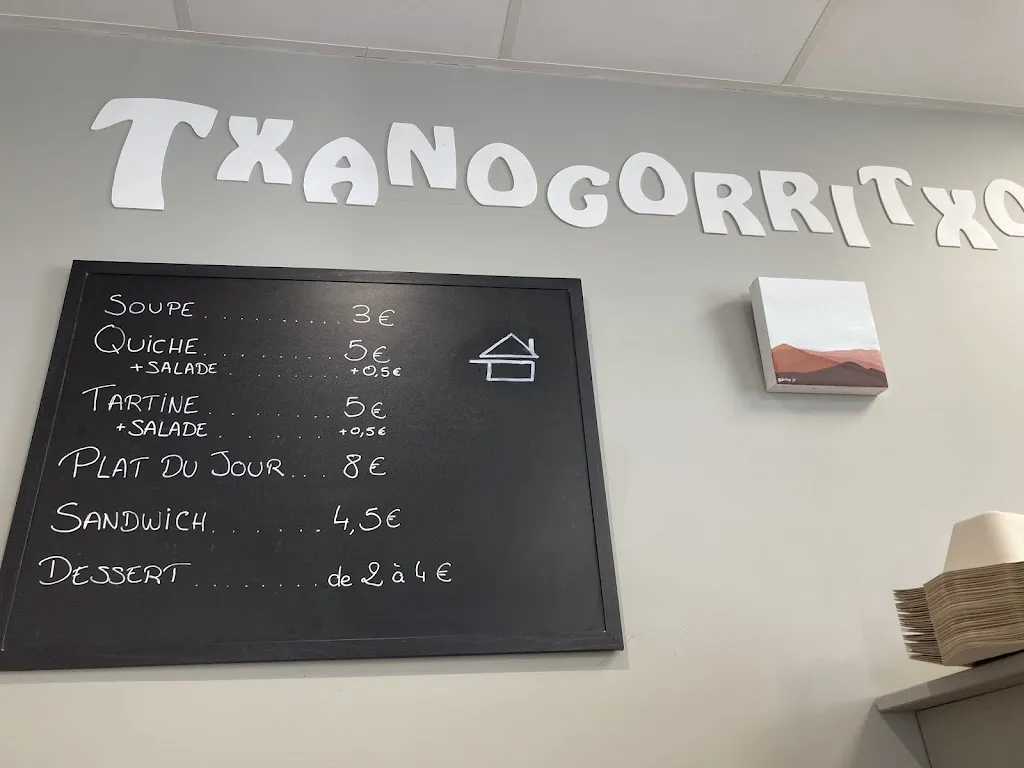 TXANOGORRITXO
SOUPE............3€
QUICHE..........5€
+SALADE..........+0,5€
TARTINE..........5€
+SALADE..........+0,5€
PLAT DU JOUR...8€
SANDWICH.......4,5€
DESSERT............de 2 à 4€